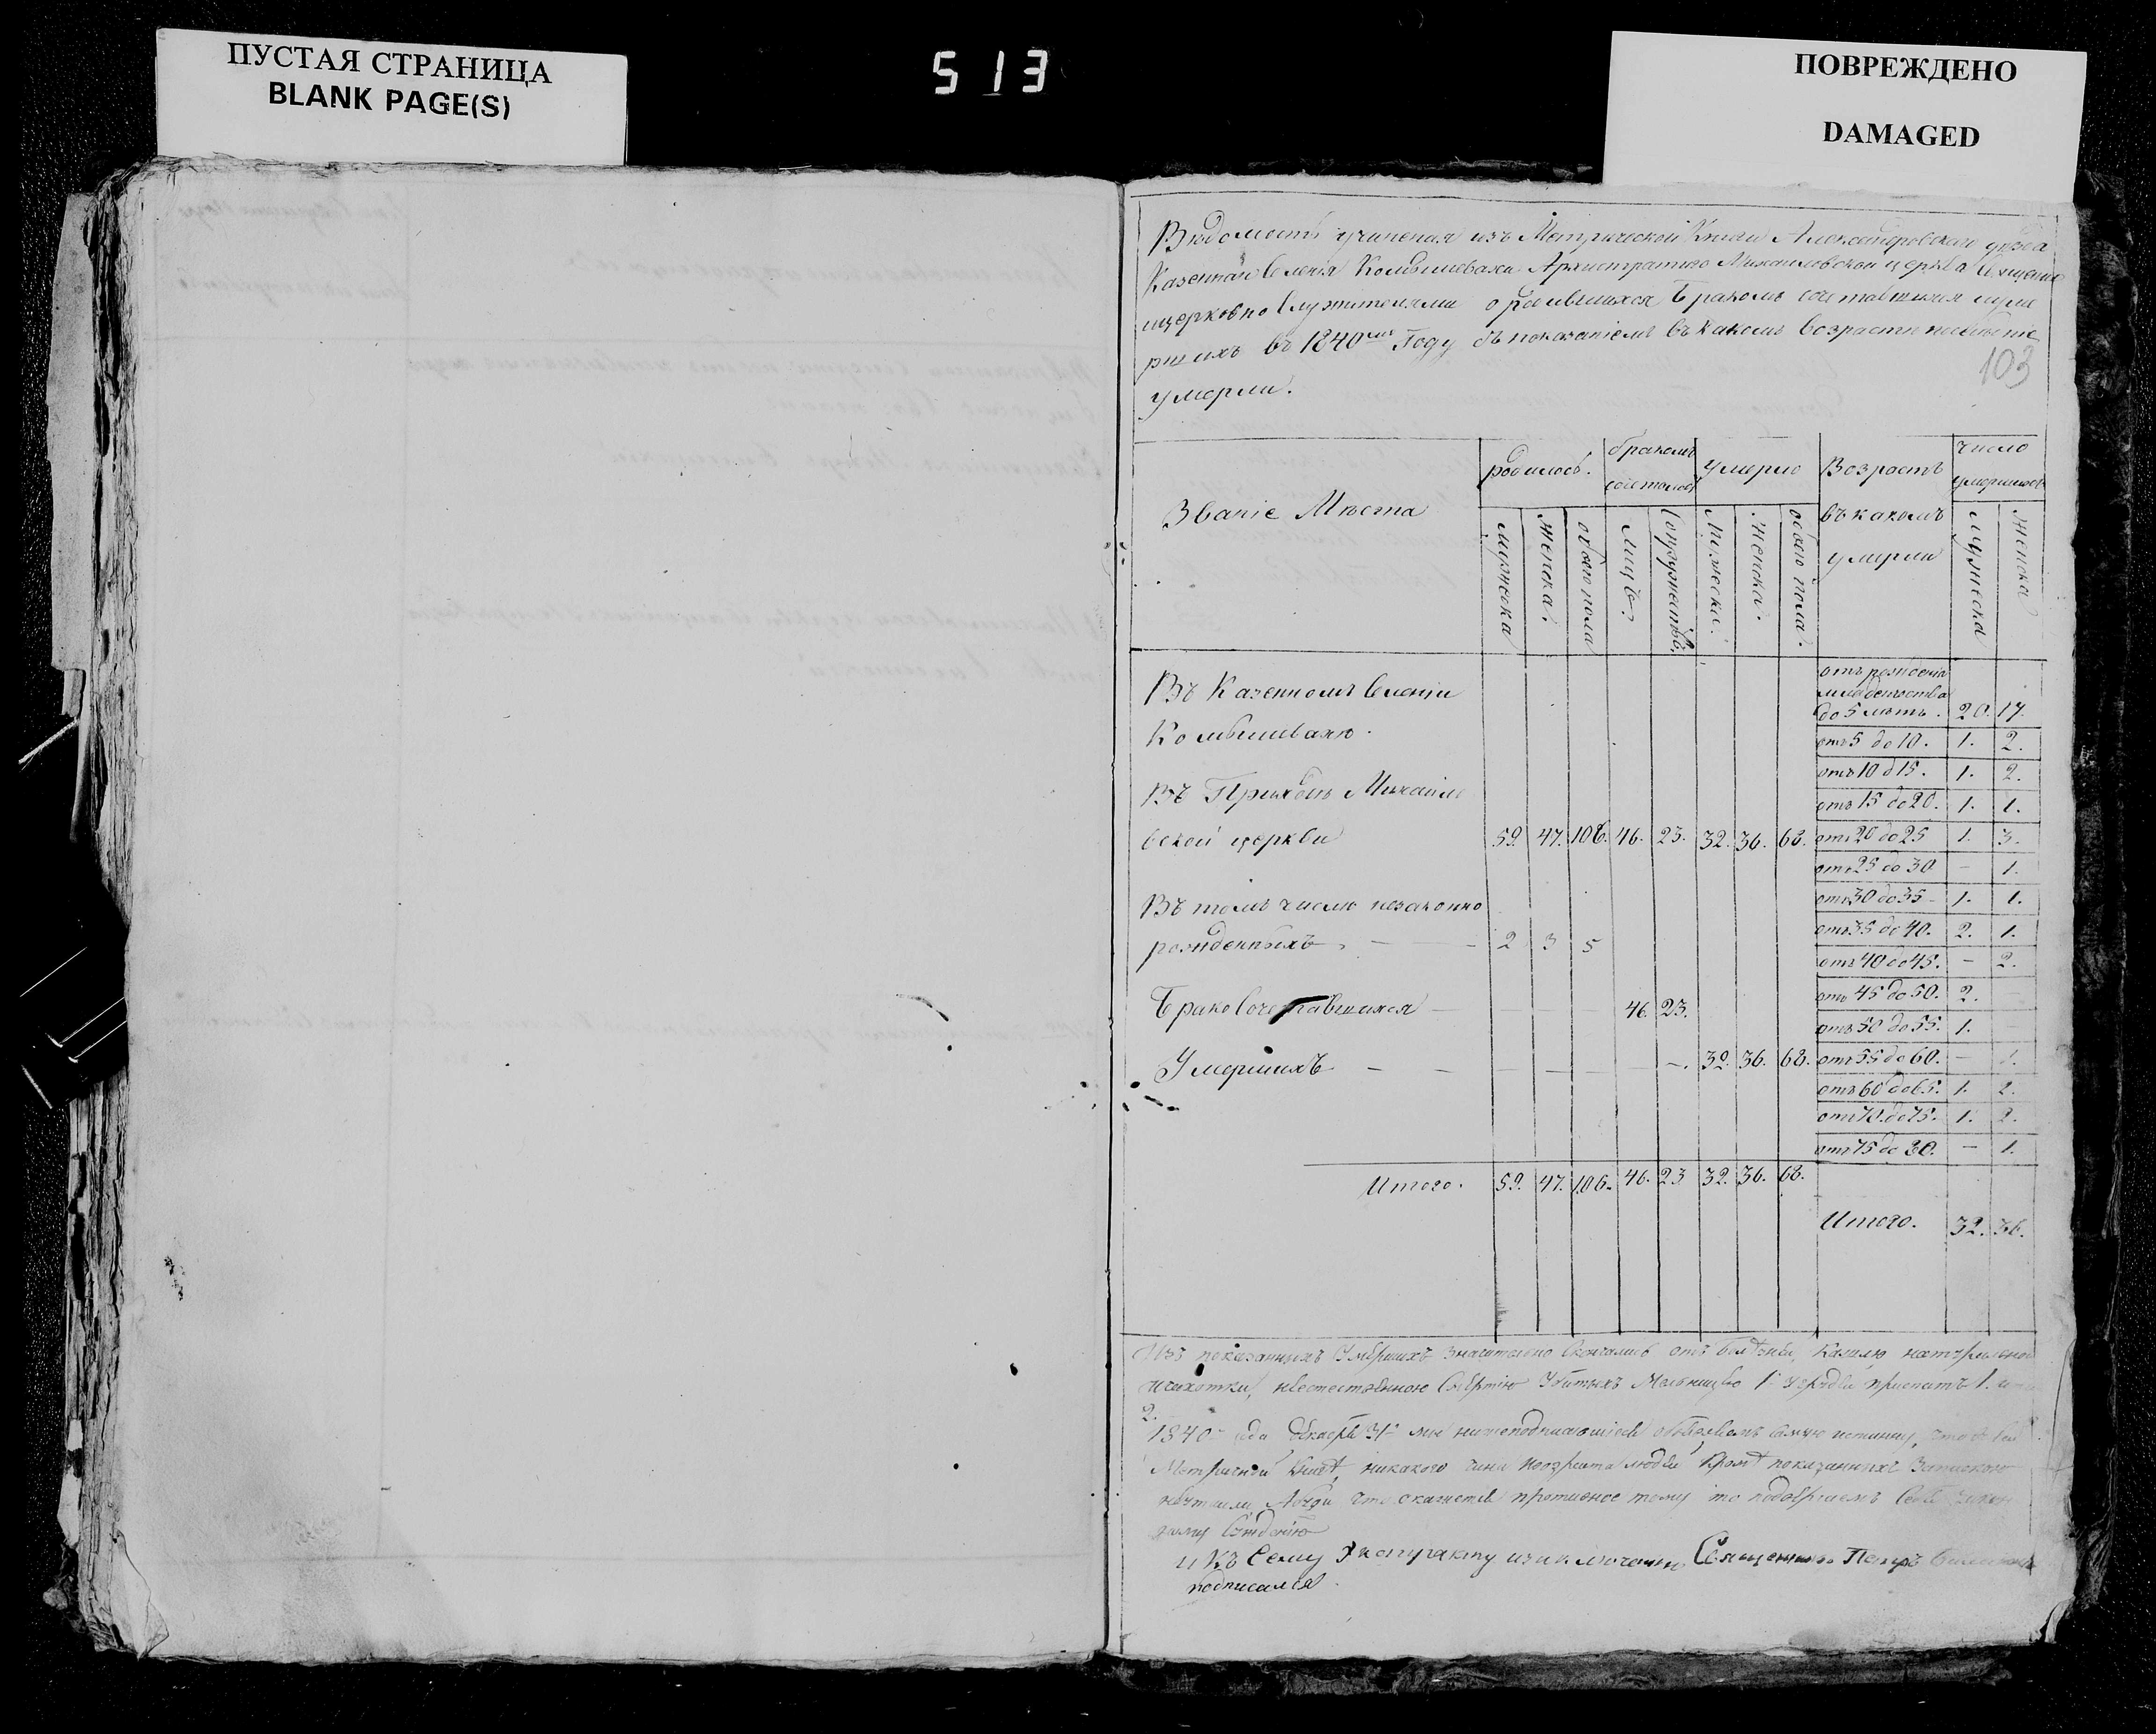 ПУСТАЯ СТРАНИЦА
BLANK PAGE(S)
513
ПОВРЕЖДЕНО
DAMAGED
Вѣдомость учиненая изъ Метрической Книги Александровского уѣзда
Казенной Селенія Комышевахи Архистратиго Михаиловской церкви
ицерковно Служителями о родившихся бракомъ сочетавшихся иуме
ршихъ въ 1840мъ Году съ показаніемъ въ какомъ возрасте
умерли.
103
Званіе Мѣста
родилось.
бракомъ сочеталось
умерло
Возрастъ въ какомъ умерли
число умершихъ
мужеска
женска.
обоего пола
лицъ.
Супружествъ.
Мужеска.
Женска.
обоего пола.
мужеска
женска
Въ Казенномъ Селеніи
Комышевахѣ.
Въ Приходѣ Михаило
вской церкви 59. 47. 106. 46. 23. 32. 36. 68.
Въ томъ числѣ незаконно
рожденныхъ 2 3 5
Бракосочетавшихся 46. 23.
Умершихъ 32. 36. 68.
Итого. 59. 47. 106. 46. 23 32. 36. 68.
отъ рожденія
младенчества
до 5 лѣтъ. 20. 17.
отъ 5 до 10. 1. 2.
отъ 10 д 15. 1. 2.
отъ 15 до 20. 1. 1.
отъ 20 до 25 1. 3.
отъ 25 до 30 — 1.
отъ 30 до 35 1. 1.
отъ 35 до 40. 2. 1.
отъ 40 до 45. — 2.
отъ 45 до 50. 2. —
отъ 50 до 55. 1. —
отъ 55 до 60. — 1.
отъ 60 до 65. 1. 2.
отъ 70. до 75. 1. 2.
отъ 75 до 80. — 1.
Итого. 32. 36.
Изъ показанныхъ Умершихъ Значительно Скончались отъ болѣзни, Кашлю
ичахотки, неестественною Смертію Убитыхъ Мельницею 1 приспатъ 1.
2.
1840 года декабря 31 мы нижеподписавшіеся объявляемъ самую истинну, что въ сей
Метричной Книгѣ, никакого чина людей Кромѣ показанныхъ
что окажется противное тому то подвергаемъ Себя
Сужденію
и Къ Сему Экстракту Священникъ Петръ
подписался.